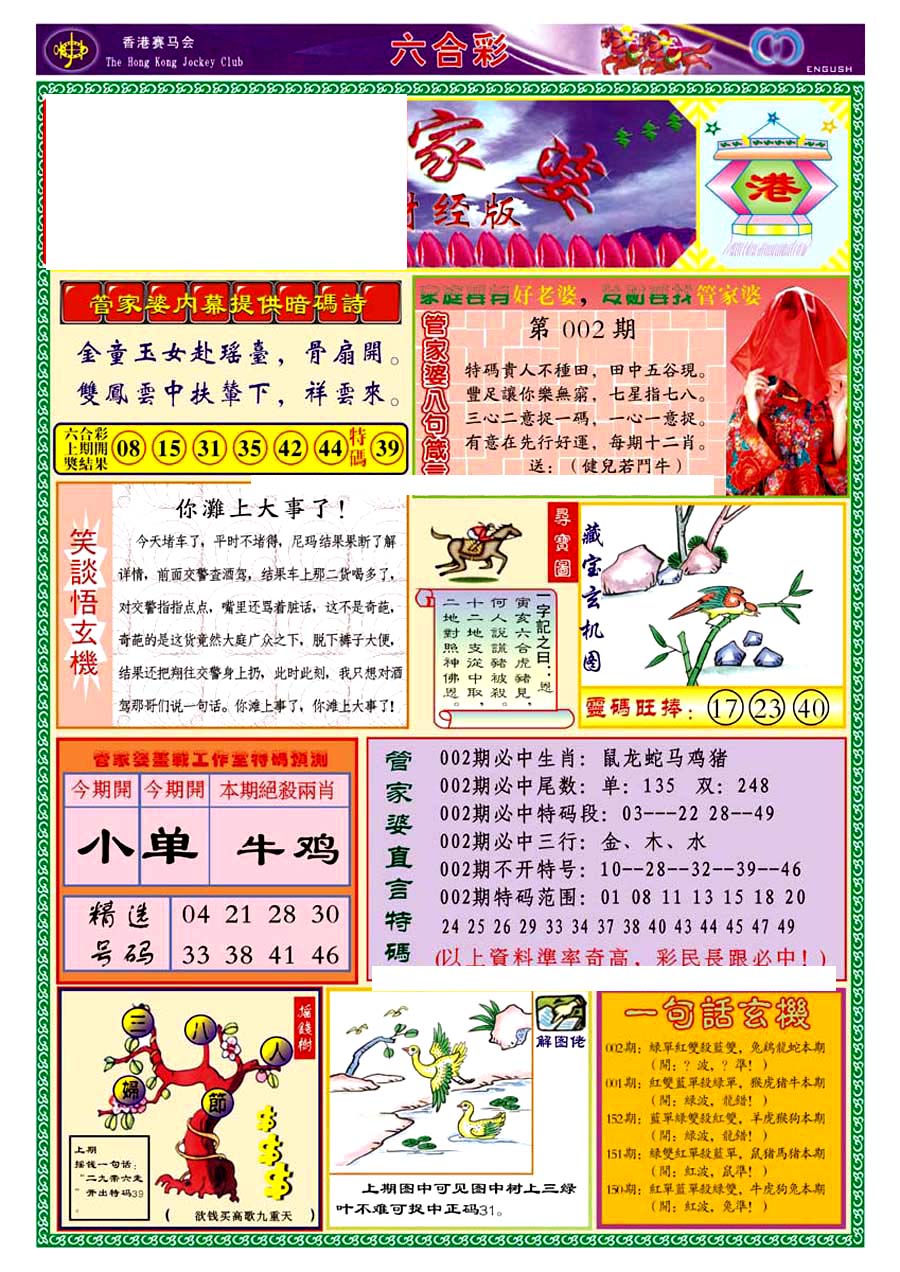 香港赛马会
The Hong Kong Jockey Club
六合彩
ENGUSH
家婆
财经版
港
管家婆内幕提供暗碼詩
金童玉女赴瑶臺，骨扇開。
雙鳳雲中扶輦下，祥雲來。
六合彩
上期開
獎結果
08 15 31 35 42 44 特碼 39
家庭要有好老婆，发财要找管家婆
管家婆八句箴言
第 002 期
特碼貴人不種田，田中五谷現。
豐足讓你樂無窮，七星指七八。
三心二意捉一碼，一心一意捉。
有意在先行好運，每期十二肖。
送：（健兒若鬥牛）
笑談悟玄機
你灘上大事了！
今天堵车了，平时不堵得，尼玛结果果断了解
详情，前面交警查酒驾，结果车上那二货喝多了，
对交警指指点点，嘴里还骂着脏话，这不是奇葩，
奇葩的是这货竟然大庭广众之下，脱下裤子大便，
结果还把翔往交警身上扔，此时此刻，我只想对酒
驾那哥们说一句话。你滩上事了，你滩上大事了!
尋寶圖
一字記之曰：恩
寅亥六合虎豬見，
何人說謊豬被殺。
十二地支從中取，
二地對照神佛恩。
藏宝玄机图
靈碼旺捧：17 23 40
管家婆蓋戟工作室特碼預測
今期開 今期開 本期絕殺兩肖
小 单 牛鸡
精选
号码
04 21 28 30
33 38 41 46
管家婆直言特碼
002期必中生肖：鼠龙蛇马鸡猪
002期必中尾数：单：135 双：248
002期必中特码段：03---22 28--49
002期必中三行：金、木、水
002期不开特号：10--28--32--39--46
002期特码范围：01 08 11 13 15 18 20
24 25 26 29 33 34 37 38 40 43 44 45 47 49
(以上資料準率奇高，彩民長跟必中！)
摇錢樹
三
八
人
婦
節
上期
摇钱一句话：
“二九零六走
”开出特码39
。
( 欲钱买高歌九重天 )
解图佬
上期图中可见图中树上三绿
叶不难可捉中正码31。
一句話玄機
002期：綠單紅雙殺藍雙，兔鸡龍蛇本期
（開：？波，？準！）
001期：紅雙藍單殺綠單，猴虎猪牛本期
（開：綠波，龍錯！）
152期：藍單綠雙殺紅雙，羊虎猴狗本期
（開：綠波，龍錯！）
151期：綠雙紅單殺藍單，鼠猪馬猪本期
（開：紅波，鼠準！）
150期：紅單藍單殺綠雙，牛虎狗兔本期
（開：紅波，兔準！）